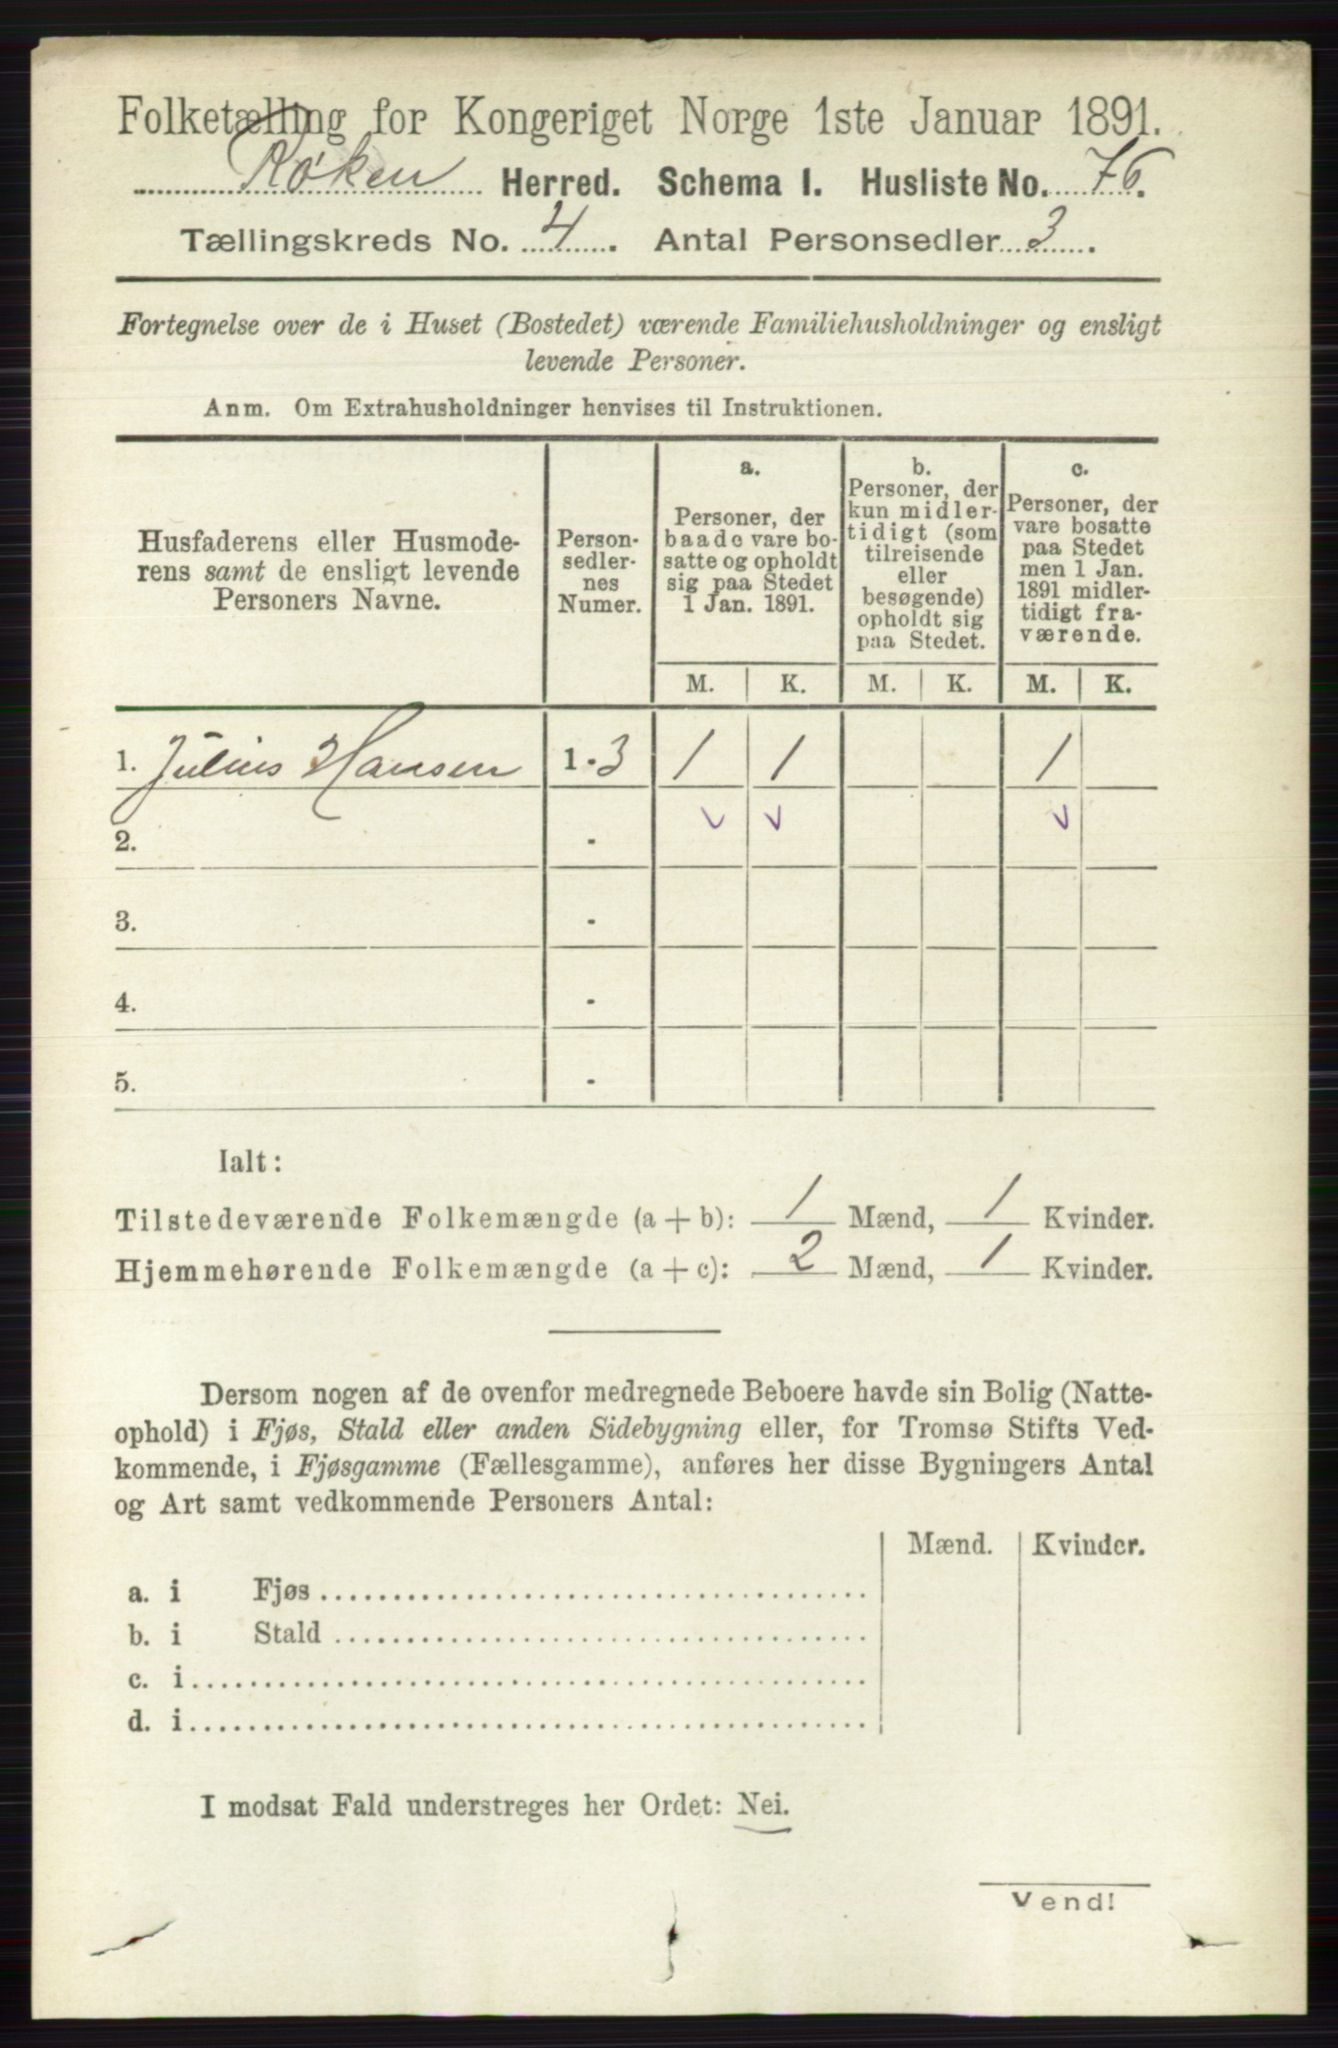 Folketælling for Kongeriget Norge 1ste Januar 1891.
Røken Herred. Schema I. Husliste No. 76.
Tællingskreds No. 4. Antal Personsedler 3.
Fortegnelse over de i Huset (Bostedet) værende Familiehusholdninger og ensligt
levende Personer.
Anm. Om Extrahusholdninger henvises til Instruktionen.
Husfaderens eller Husmode-
rens samt de ensligt levende
Personers Navne.
Person-
sedler-
nes
Numer.
a.
Personer, der
baade vare bo-
satte og opholdt
sig paa Stedet
1 Jan. 1891.
b.
Personer, der
kun midler-
tidigt (som
tilreisende
eller
besøgende)
opholdt sig
paa Stedet.
c.
Personer, der
vare bosatte
paa Stedet
men 1 Jan.
1891 midler-
tidigt fra-
værende.
M. K. M. K. M. K.
1. Julius Hansen 1-3 1 1 1
2. -
3. -
4. -
5. -
Ialt:
Tilstedeværende Folkemængde (a + b): 1 Mænd, 1 Kvinder.
Hjemmehørende Folkemængde (a + c): 2 Mænd, 1 Kvinder.
Dersom nogen af de ovenfor medregnede Beboere havde sin Bolig (Natte-
ophold) i Fjøs, Stald eller anden Sidebygning eller, for Tromsø Stifts Ved-
kommende, i Fjøsgamme (Fællesgamme), anføres her disse Bygningers Antal
og Art samt vedkommende Personers Antal:
Mænd. Kvinder.
a. i Fjøs
b. i Stald
c. i
d. i
I modsat Fald understreges her Ordet: Nei.
Vend!